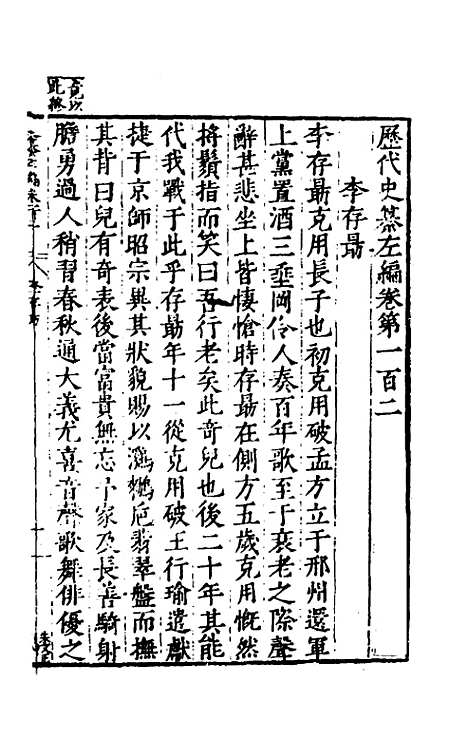 歷代史纂左編卷第一百二
李存勗
李存勗克用長子也初克用破孟方立于邢州還軍
上黨置酒三垂岡伶人奏百年歌至于衰老之際聲
辭甚悲坐上皆悽愴時存勗在側方五歲克用慨然
捋鬚指而笑曰吾行老矣此奇兒也後二十年其能
代我戰于此乎存勗年十一從克用破王行瑜遣獻
捷于京師昭宗異其狀貌賜以鸂鶒巵翡翠盤而撫
其背曰兒有奇表後當富貴無忘予家及長善騎射
膽勇過人稍習春秋通大義尤喜音聲歌舞俳優之